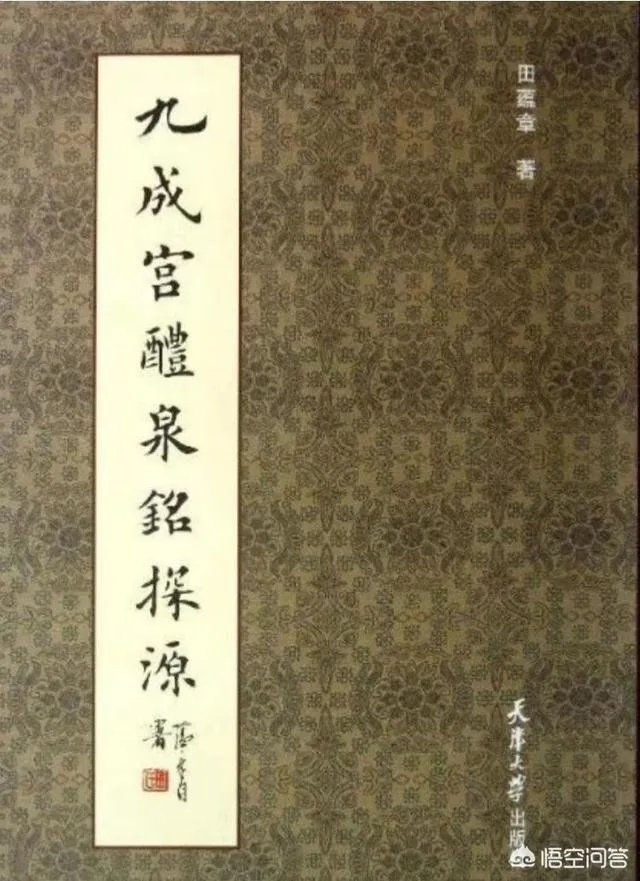 九成宫醴泉銘探源
田蕴章 著
天津大学出版
悟空问答